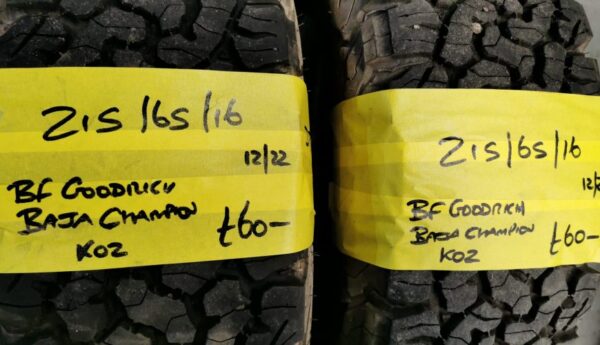 215/65/16
12/22
BF GOODRICH
BAJA CHAMPION
KO2
£60-
215/65/16
12/2
BF GOODRICH
BAJA CHAMPION
KO2
£60-